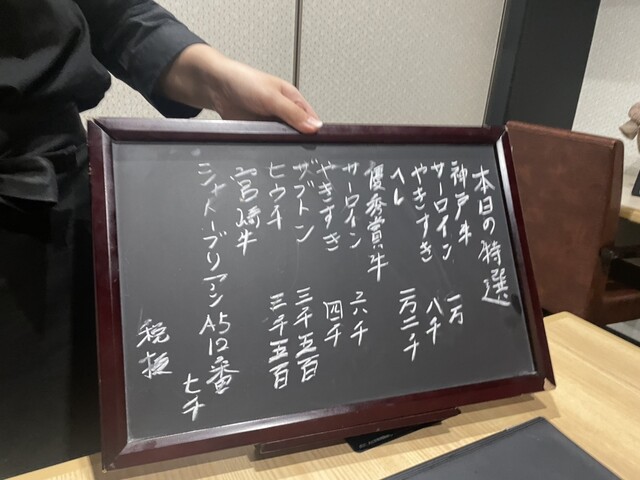 本日の特選
神戸牛
サーロイン 一万
やきすき 八千
ヘレ 一万二千
優秀賞牛
サーロイン 六千
やきすき 四千
ザブトン 三千五百
ヒウチ 三千五百
宮崎牛
シャトーブリアン A5 12番 七千
税抜